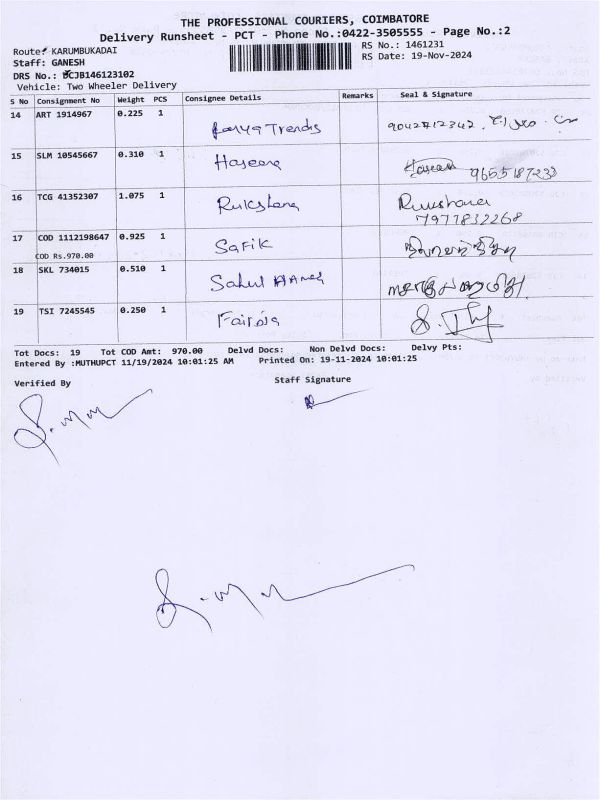 THE PROFESSIONAL COURIERS, COIMBATORE
Delivery Runsheet - PCT - Phone No.:0422-3505555 - Page No.:2
Route: KARUMBUKADAI
RS No.: 1461231
Staff: GANESH
RS Date: 19-Nov-2024
DRS No.: BCJB146123102
Vehicle: Two Wheeler Delivery
S No Consignment No Weight PCS Consignee Details Remarks Seal & Signature
14 ART 1914967 0.225 1 Trends
15 SLM 10545667 0.310 1 Haseena Haseena 9655187233
16 TCG 41352307 1.075 1 Rukshana Rukshana
7977832268
17 COD 1112198647 0.925 1 Safik
COD Rs.970.00
18 SKL 734015 0.510 1 Sahul
19 TSI 7245545 0.250 1 Fairoja
Tot Docs: 19 Tot COD Amt: 970.00 Delvd Docs: Non Delvd Docs: Delvy Pts:
Entered By :MUTHUPCT 11/19/2024 10:01:25 AM Printed On: 19-11-2024 10:01:25
Verified By Staff Signature